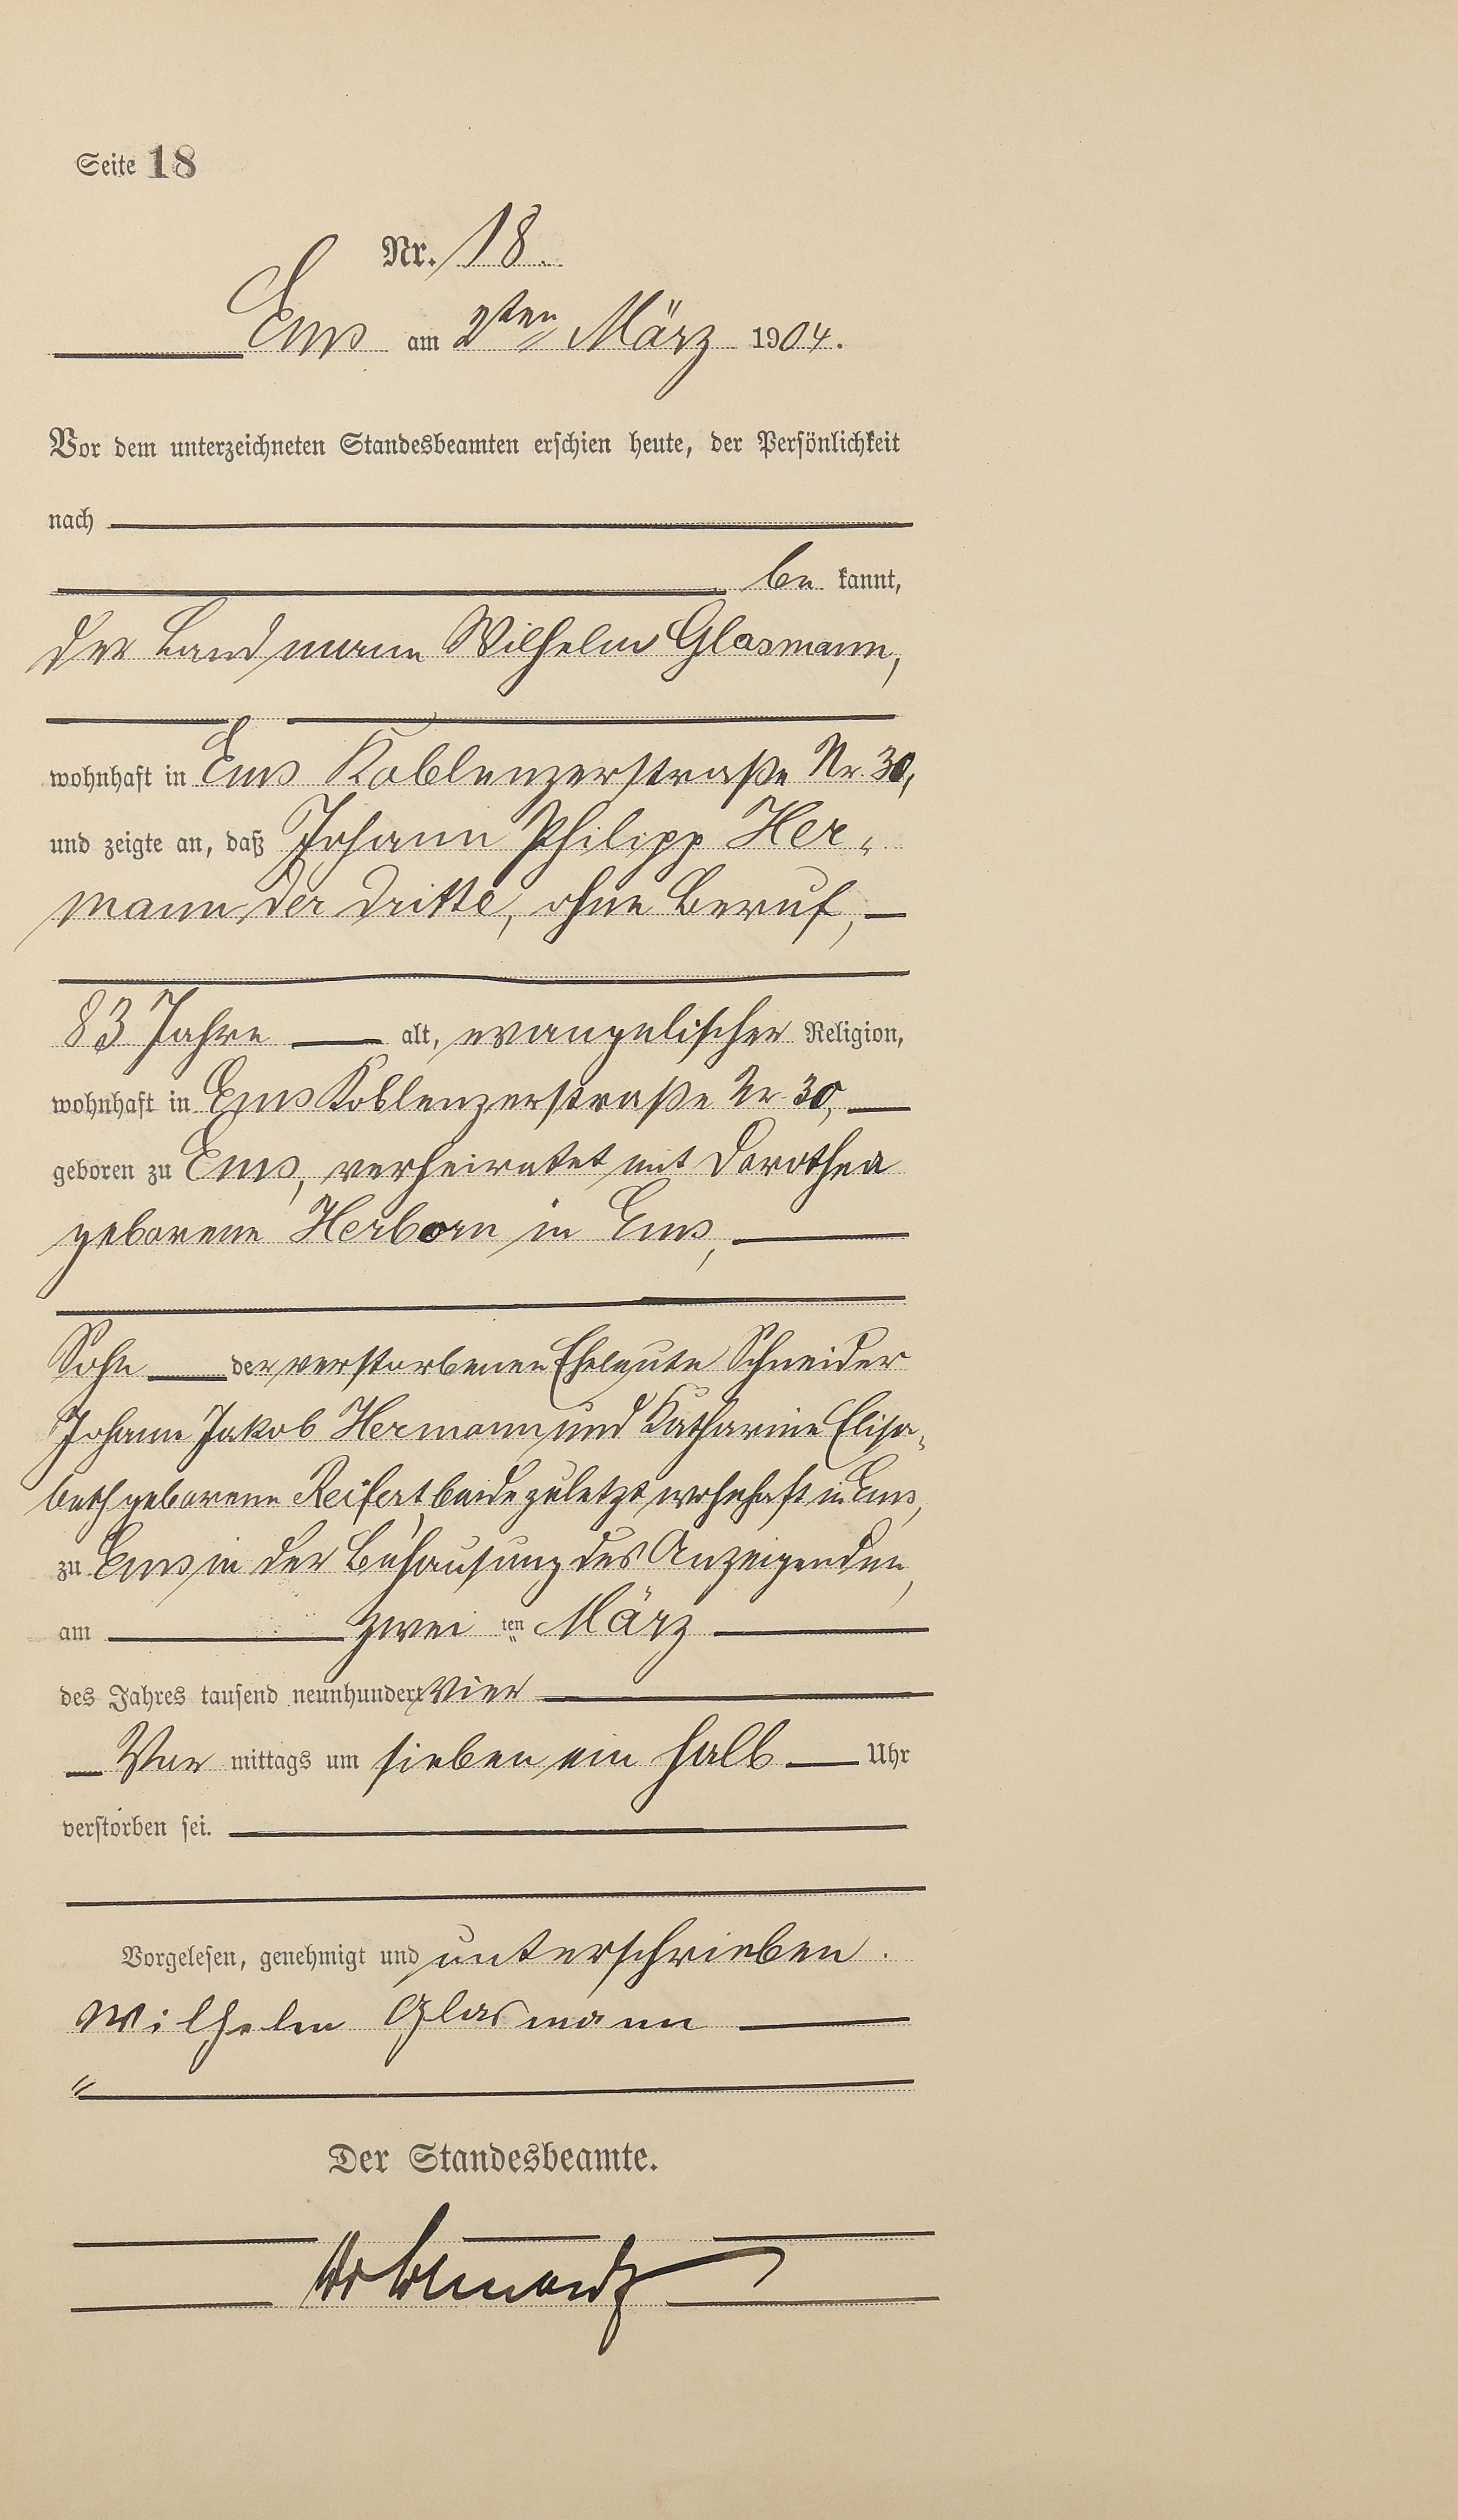 Seite 18
Nr. 18.
Ems am 2ten März 1904.
Vor dem unterzeichneten Standesbeamten erschien heute, der Persönlichkeit
nach
be kannt,
der Landmann Wilhelm Glasmann,
wohnhaft in Ems Koblenzerstraße Nr. 30,
und zeigte an, daß Johann Philipp Her„
mann der Dritte, ohne Beruf,
83 Jahre alt, evangelischer Religion,
wohnhaft in Ems Koblenzerstraße Nr 30,
geboren zu Ems, verheiratet mit Dorothea
geborene Herborn in Ems,
Sohn der verstorbenen Eheleute Schneider
Johann Jakob Hermann und Katharine Elisa„
beth geborene Reifert, beide zuletzt wohnhaft in Ems,
zu Ems in der Behausung des Anzeigenden,
am zwei ten März
des Jahres tausend neunhundert vier
Vor mittags um sieben ein halb Uhr
verstorben sei.
Vorgelesen, genehmigt und unterschrieben.
Wilhelm Glasmann
Der Standesbeamte.